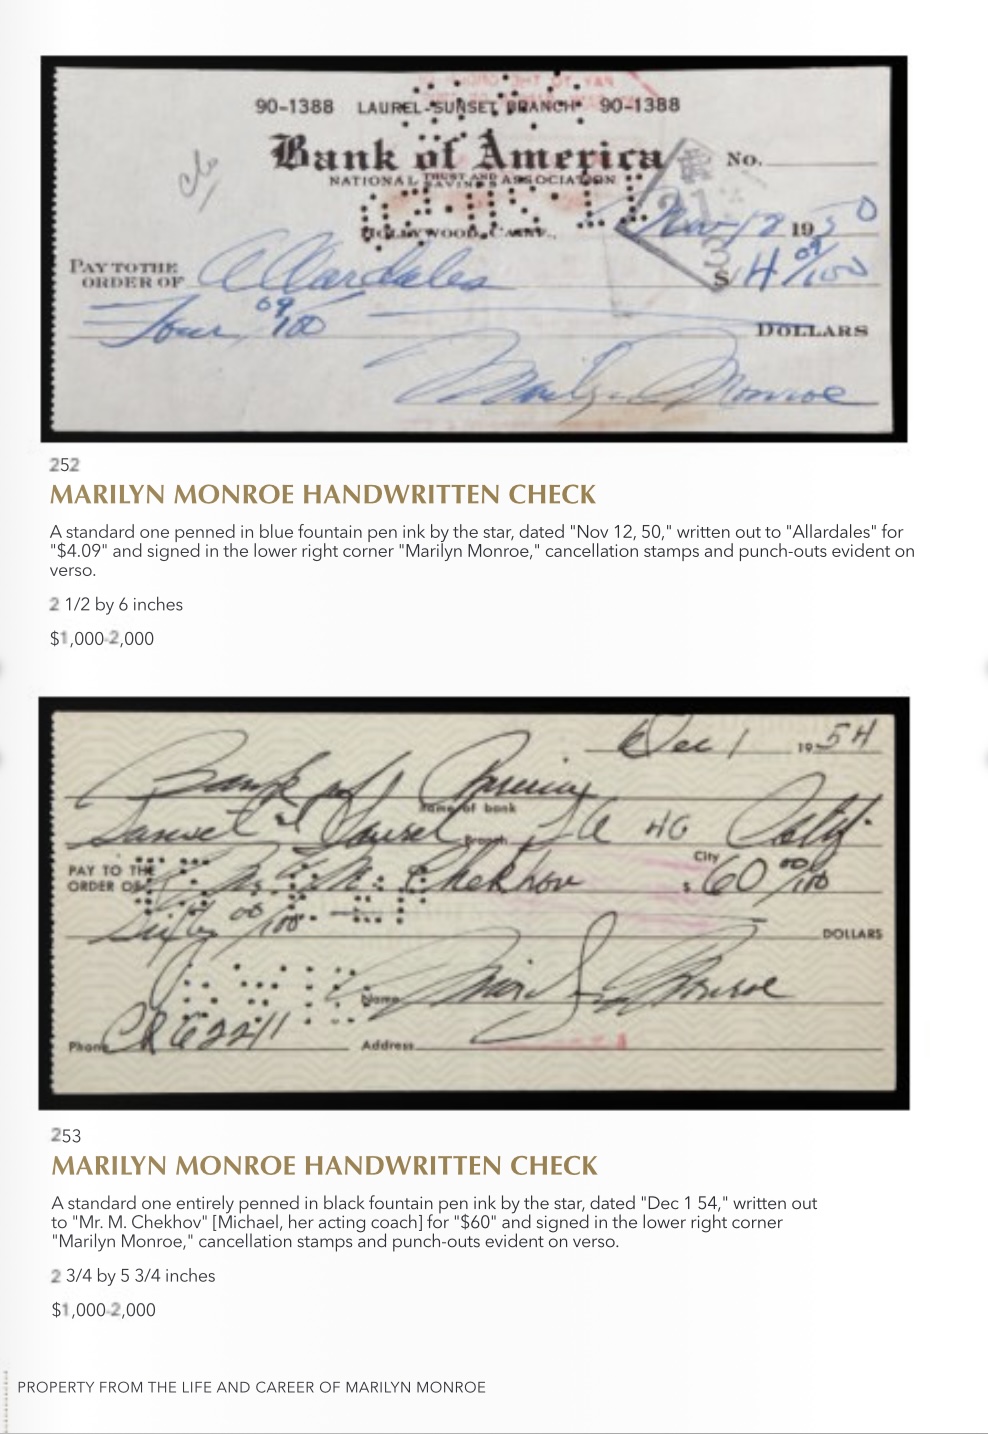 90-1388 LAUREL-SUNSET BRANCH 90-1388
Bank of America
NATIONAL TRUST AND SAVINGS ASSOCIATION
No.
HOLLYWOOD, CALIF.,
Nov 12 1950
PAY TO THE
ORDER OF Allardales $ 4 09/100
Four 09/100 DOLLARS
Marilyn Monroe
252
MARILYN MONROE HANDWRITTEN CHECK
A standard one penned in blue fountain pen ink by the star, dated "Nov 12, 50," written out to "Allardales" for
"$4.09" and signed in the lower right corner "Marilyn Monroe," cancellation stamps and punch-outs evident on
verso.
2 1/2 by 6 inches
$1,000-2,000
Dec 1 1954
Bank of
Name of bank
Sunset & Laurel Branch LA 46 Calif.
City
PAY TO THE
ORDER OF M. Chekhov $ 60 00/100
Sixty 00/100 DOLLARS
Name Marilyn Monroe
Phone CR 62211 Address
253
MARILYN MONROE HANDWRITTEN CHECK
A standard one entirely penned in black fountain pen ink by the star, dated "Dec 1 54," written out
to "Mr. M. Chekhov" [Michael, her acting coach] for "$60" and signed in the lower right corner
"Marilyn Monroe," cancellation stamps and punch-outs evident on verso.
2 3/4 by 5 3/4 inches
$1,000-2,000
PROPERTY FROM THE LIFE AND CAREER OF MARILYN MONROE